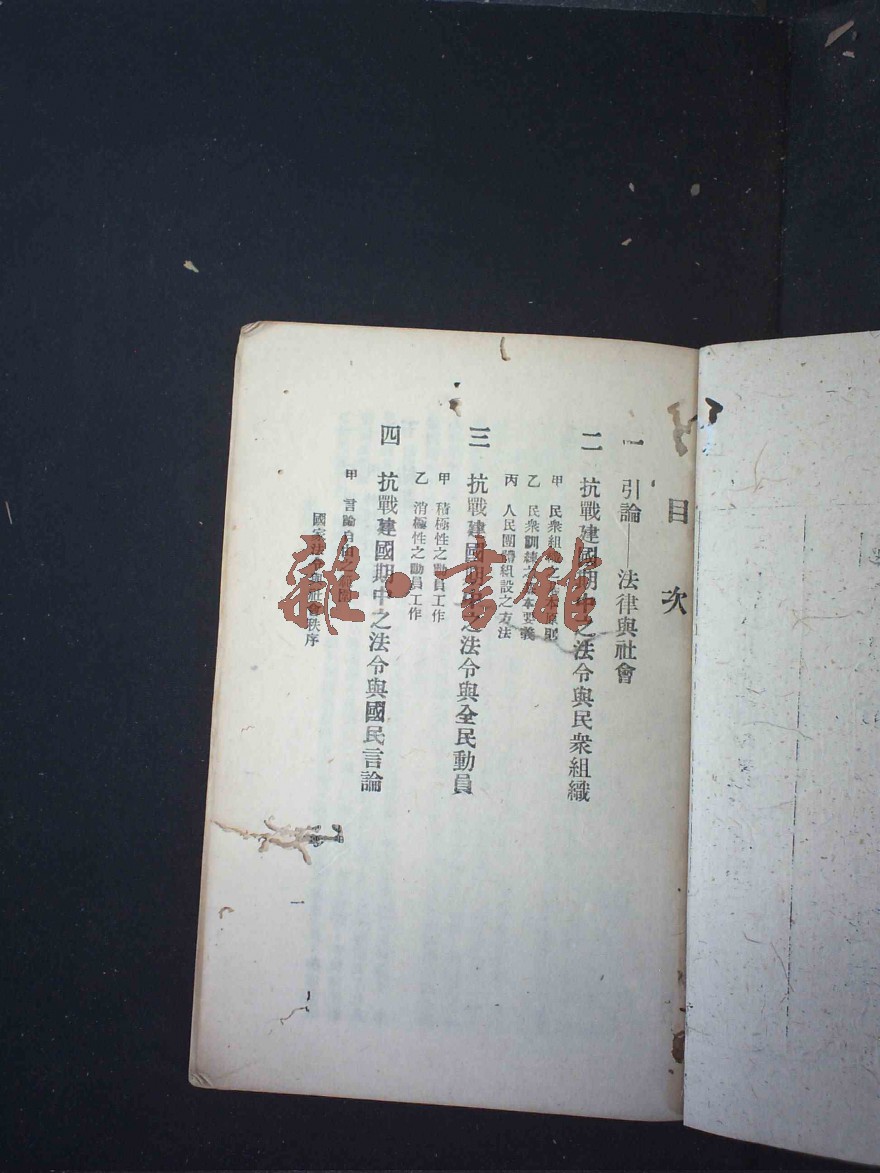 目次
一 引論——法律與社會
二 抗戰建國期中之法令與民衆組織
甲 民衆組織之基本原則
乙 民衆訓練之基本要義
丙 人民團體組設之方法
三 抗戰建國期中之法令與全民動員
甲 積極性之動員工作
乙 消極性之動員工作
四 抗戰建國期中之法令與國民言論
甲 言論自由之
國家法令與社會秩序
一
雜·書館